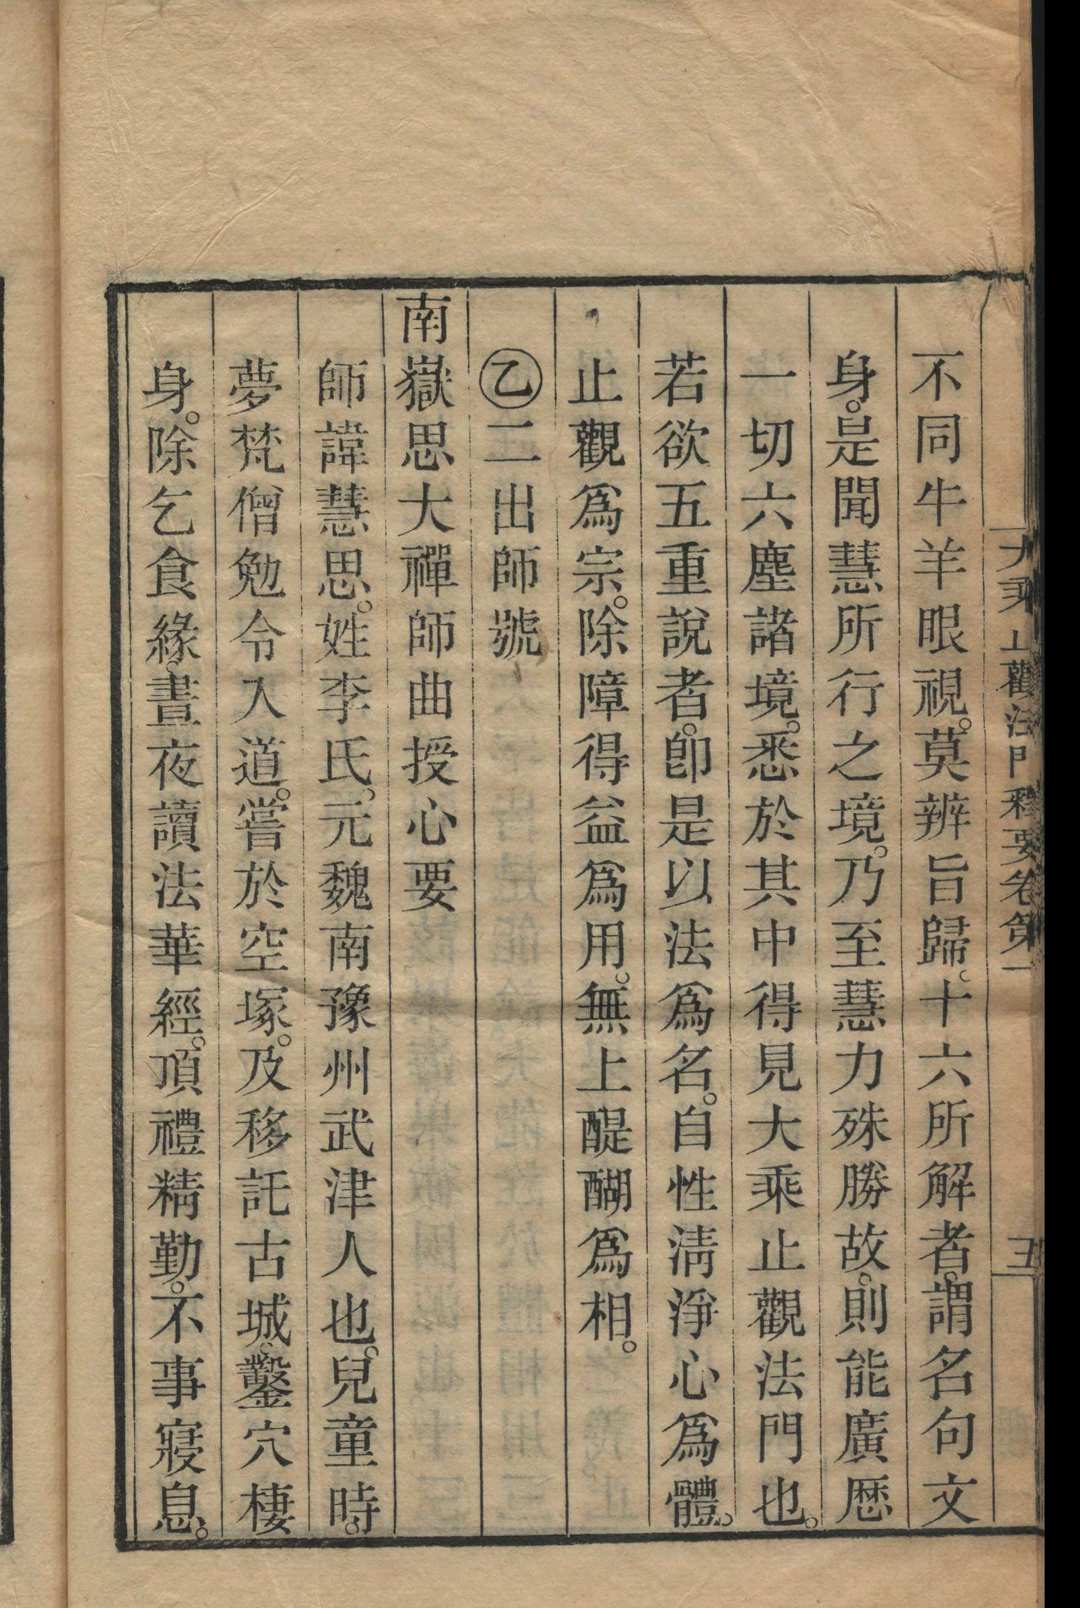 大乘止觀法門釋要卷第一　五
不同牛羊眼視。莫辨旨歸。十六所解者。謂名句文
身。是聞慧所行之境。乃至慧力殊勝故。則能廣歷
一切六塵諸境。悉於其中得見大乘止觀法門也。
若欲五重說者。卽是以法爲名。自性淸淨心爲體。
止觀爲宗。除障得益爲用。無上醍醐爲相。
㊁乙二出師號
南嶽思大禪師曲授心要
師諱慧思。姓李氏。元魏南豫州武津人也。兒童時。
夢梵僧勉令入道。嘗於空塚。及移託古城。鑿穴棲
身。除乞食緣。晝夜讀法華經。頂禮精勤。不事寢息。